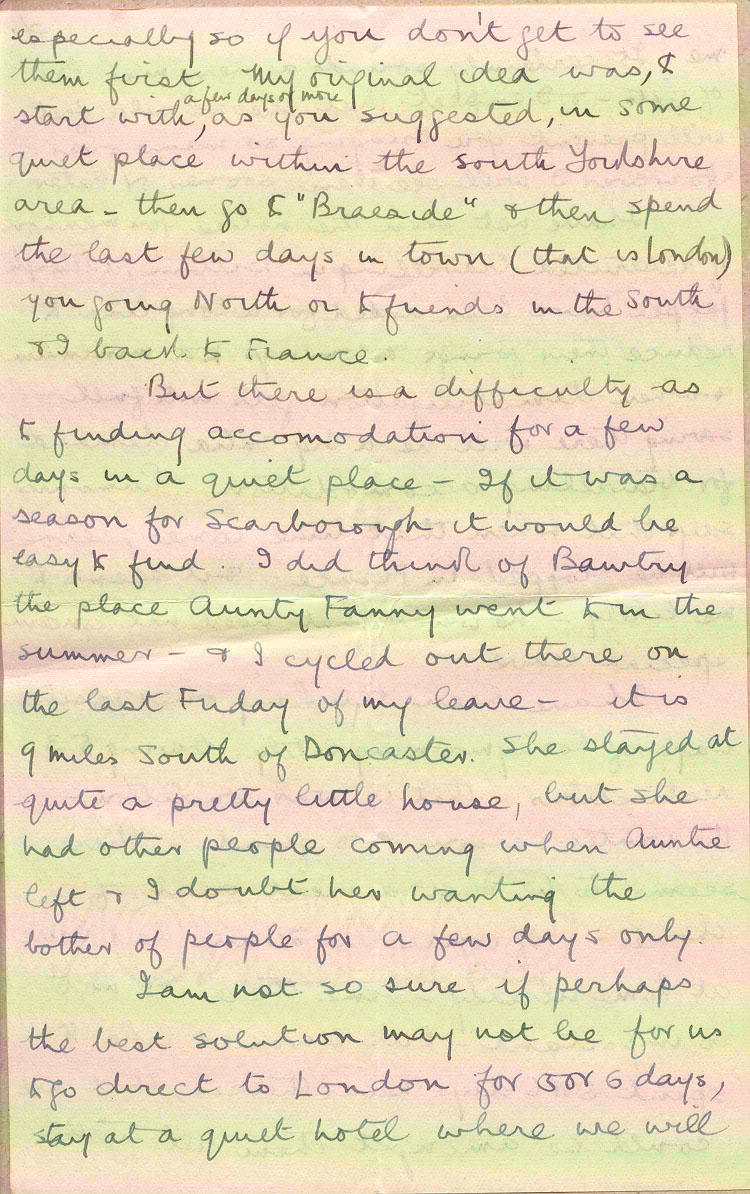 especially so if you don't get to see
them first. My original idea was, to
start with, a few days or more, as you suggested, in some
quiet place within the South Yorkshire
area - then go to "Braeside" & then spend
the last few days in town (that is London)
you going North or to friends in the South
& I back to France.
But there is a difficulty as
to finding accomodation for a few
days in a quiet place - If it was a
season for Scarborough it would be
easy to find. I did think of Bawtry
the place Aunty Fanny went to in the
summer - & I cycled out there on
the last Friday of my leave - it is
9 miles South of Doncaster. She stayed at
quite a pretty little house, but she
had other people coming when Auntie
left & I doubt her wanting the
bother of people for a few days only.
I am not so sure if perhaps
the best solution may not be for us
to go direct to London for 5 or 6 days,
stay at a quiet hotel where we will